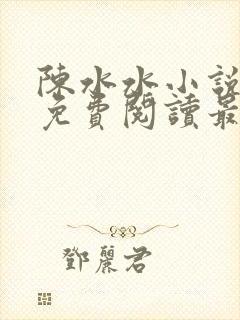 陳水水小說
免費閱讀最
鄧麗君